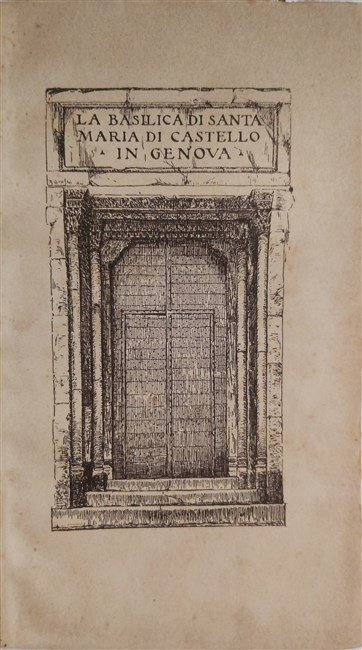 LA BASILICA DI SANTA
MARIA DI CASTELLO
IN GENOVA